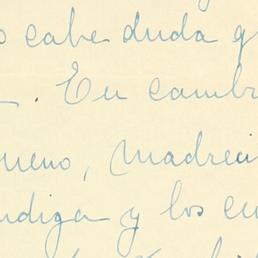 cabe duda q
. En cambi
meno, madreci
ndiga y los cu